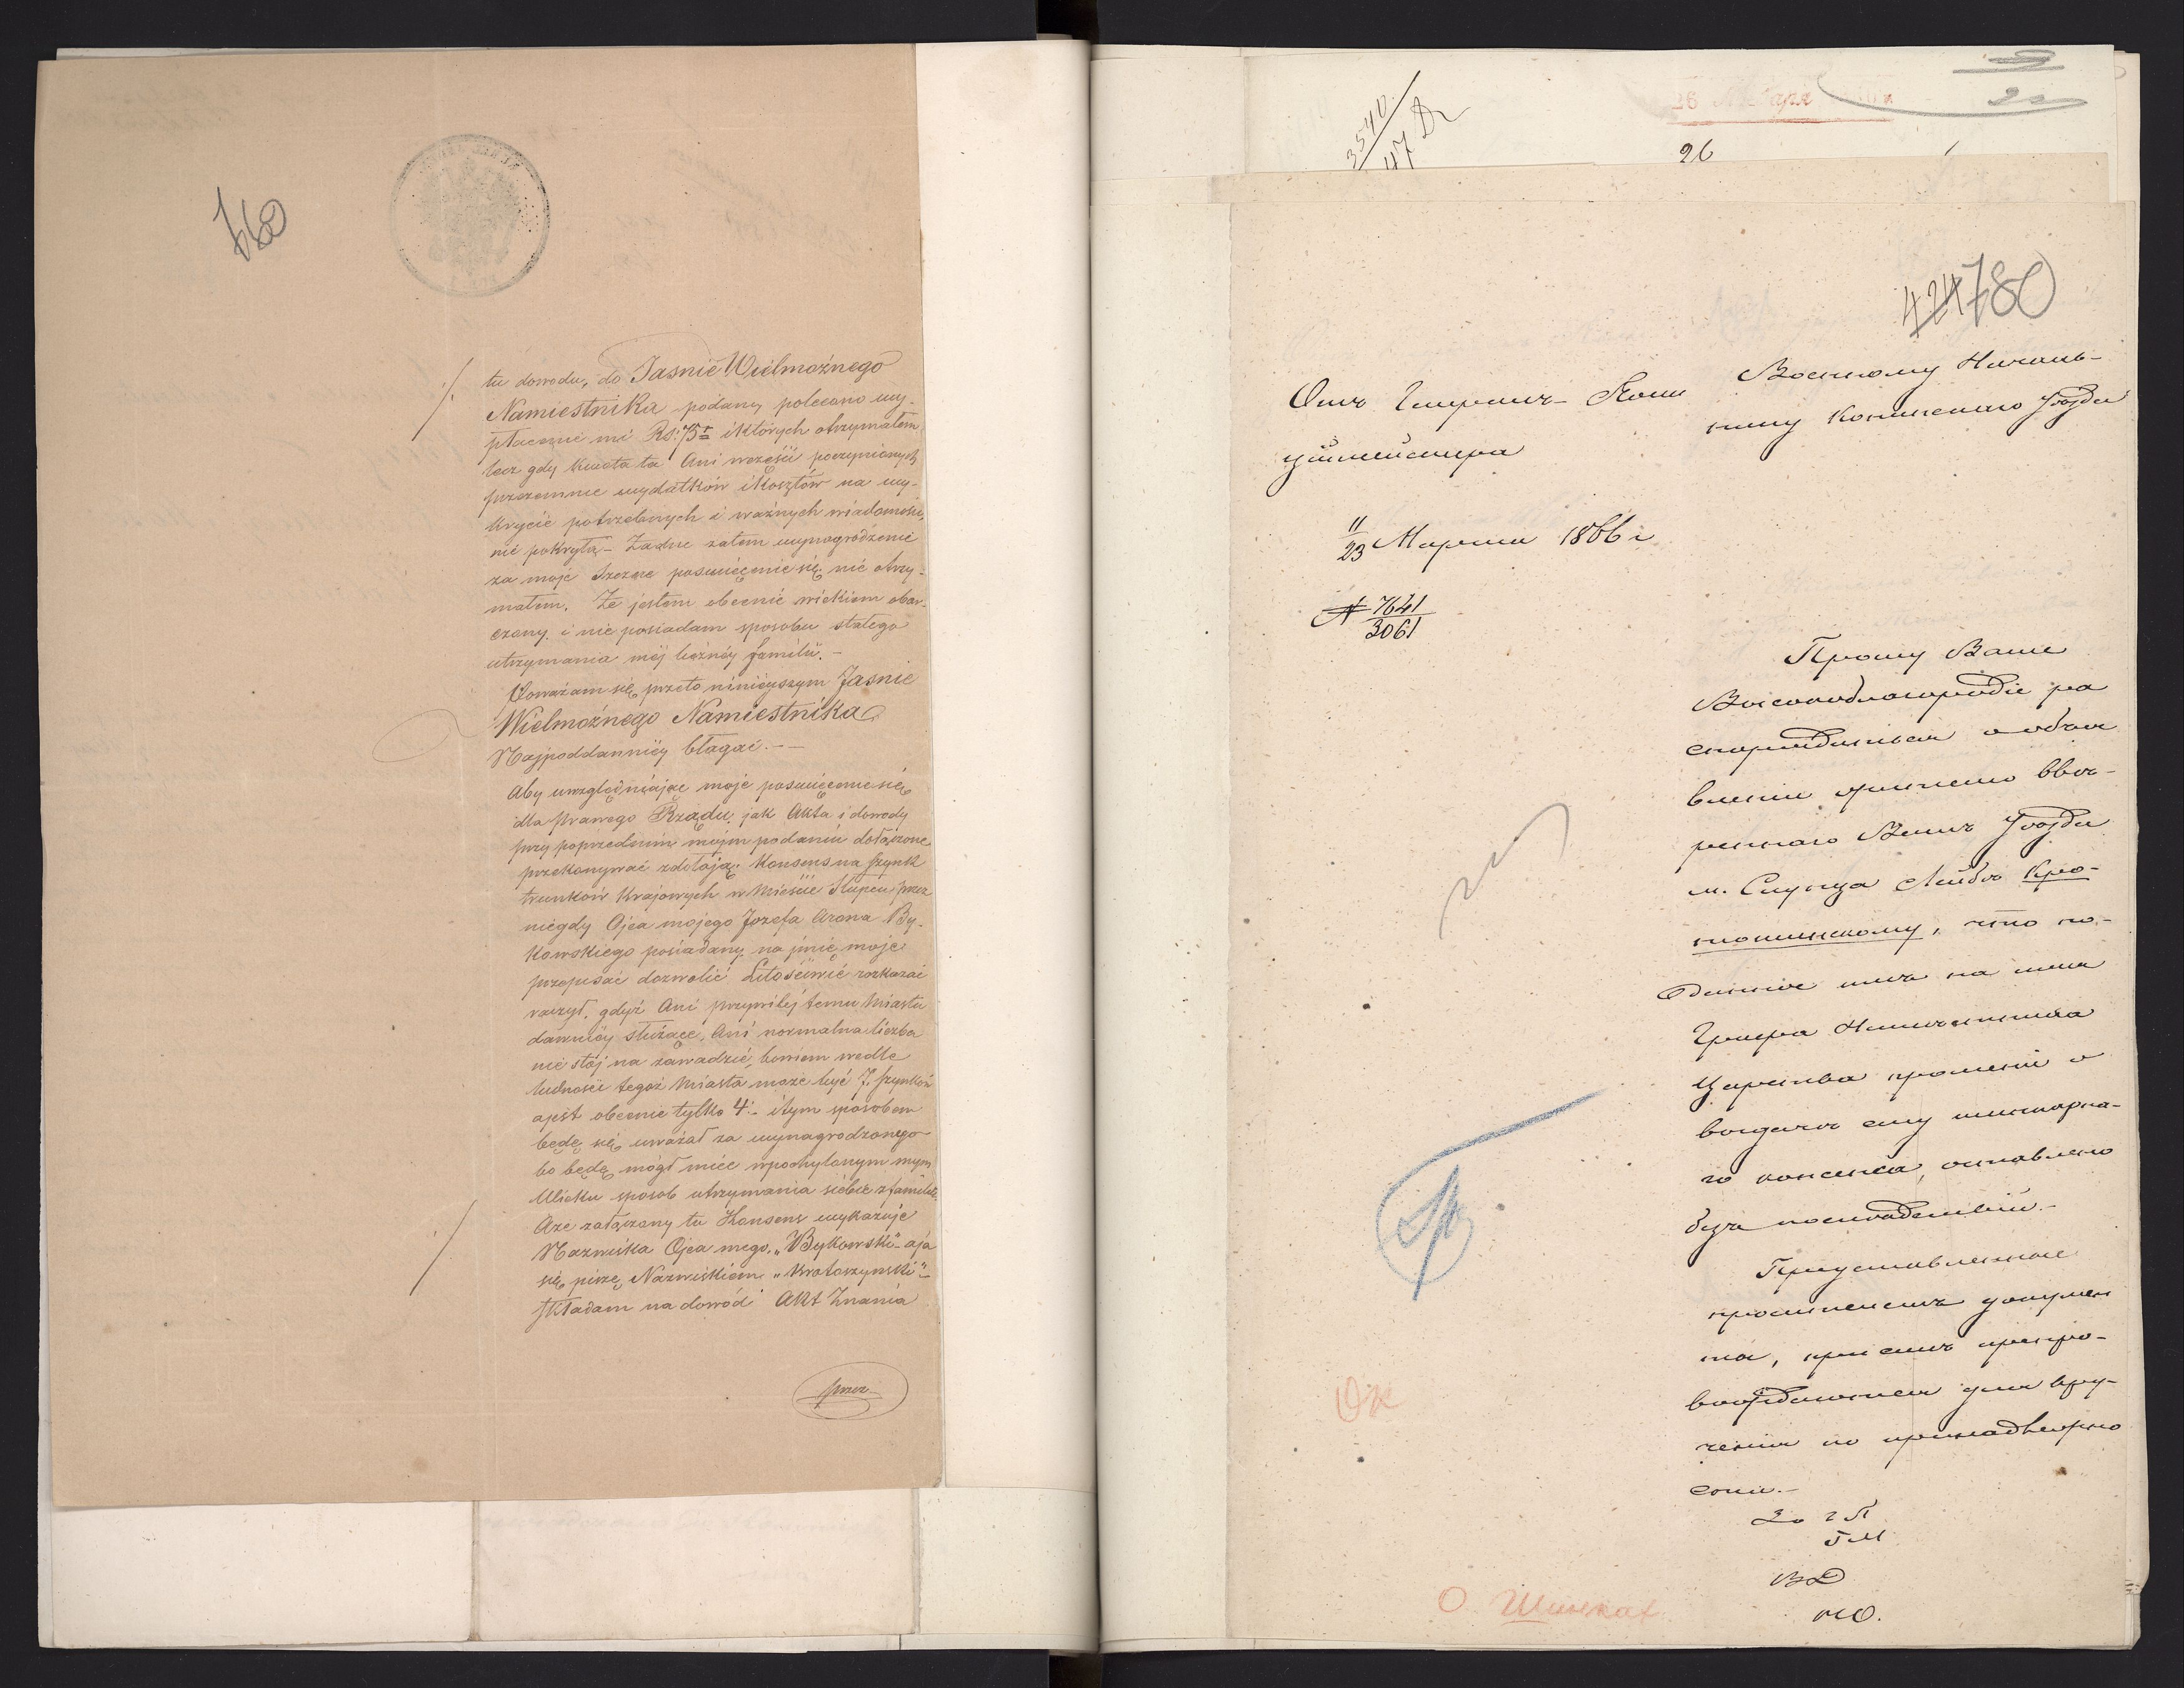 760
tu dowodu, do Jasnie Wielmożnego
Namiestnika podany polecano wy-
płacenie mi Rs: 75 i których otrzymałem,
lecz gdy kwota ta Ani wcześci poczynionych
przezemnie wydatków i kosztów na wy-
krycie potrzebnych i ważnych wiadomości,
nie pokryła – Żadne zatem wynagrodzenie
za moje szczere poswięcenie się nie otrzy-
małem, Że jestem obecnie wiekiem obar-
czony, i nie posiadam sposobu stałego
utrzymania mej licznéj familii. –
Poważam się przeto niniéjszym Jasnie
Wielmożnego Namiestnika
Najpoddanniéj błagać. –
Aby uwzględniając moje poswięcenie się
dla prawego Rządu, jak Akta i dowody
przy poprzednim mojem podaniu dołączone
przekonywać zdołają, Konsens na szynk
trunków Krajowych w Mieście Słupcu przez
niegdy Ojca mojego Jozefa Arona By-
kowskiego posiadany, na jmię moje
przepisać dozwolić Litościwie rozkazać
raczył, gdyż Ani przywilej temu Miastu
dawniéj służące, Ani normalna liczba
nie stoj na zawadzie, bowiem wedle
ludności tegoż Miasta może być 7. szynków
a jest obecnie tylko 4. – i tym sposobem
będę się uważał za wynagrodzonego
bo będę mógł miéc w pochylonym mym
Wieku sposob utrzymania siebie z familią.
A że załączony tu Konsens wykazuje
Nazwiska Ojca mego „Bykowski" – a ja
się piszę Nazwiskiem „Krotoszynski" –
składam na dowód Akt Znania
przez
3540
47
26 Января
26
424 780
Военному Началь-
нику Конинскаго Уѣзда
Отъ Генералъ- Поли
ціймейстера
11/23 Марта 1866 г
№ 7641/3061
Прошу Ваше
Высокоблагородіе ра
споряжиться о объя
вленіи жителю ввѣ-
реннаго Вамъ Уѣзда
м. Слупца Лейбѣ Кро-
тошинскому, что по-
данное имъ на имя
Графа Намѣстника
Царства прошеніе о
выдачѣ ему шинкарна-
го консенса, оставлено
безъ послѣдствій. –
Представленные
просителемъ докумен
ты, при семъ препро-
вождаются для вру-
ченія по принадлежно
сти. –
ОК
О Шинках